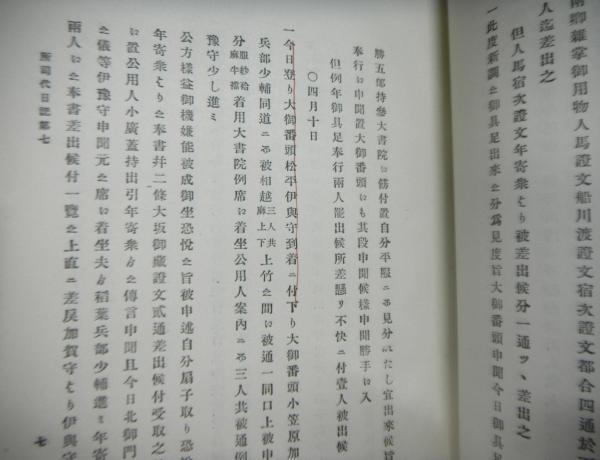 兩卿雜掌御用物人馬證文船川渡證文宿次證文都合四通於
人迄差出之
但人馬宿次證文年寄衆ゟ被差出候分一通ツヽ差出之
一此度新調之御具足出來之分爲見度旨大御番頭申聞今日御具足
勝五郎持參大書院ニ筋付置自分平服ニ而見分いたし宜出來候旨
奉行ニ申聞置大御番頭ニも其段申聞候樣申聞勝手ニ入
但例年御具足奉行兩人罷出候所差懸り不快ニ付壹人被出候
〇四月十日
一今日登り大御番頭松平伊與守到着ニ付下り大御番頭小笠原加
兵部少輔同道ニ而被相越三人共麻上下上竹之間ニ被通一同口上被申
分服紗袷麻半襠着用大書院例席ニ着坐公用人案內ニ而三人共被通例
豫守少し進ミ
公方樣益御機嫌能被成御坐恐悅之旨被申述自分扇子取り恐悅
年寄衆ゟ之奉書幷二條大坂御藏證文貳通差出候付受取之
ニ置公用人小廣蓋持出引年寄衆ゟ之傳言申聞且今日北御門
之儀等伊豫守申聞元之席ニ着坐夫ゟ稻葉兵部少輔進ミ年寄
兩人ニ之奉書差出候付一覽之上直ニ差戾加賀守ゟ伊與守
所司代日記第七
七